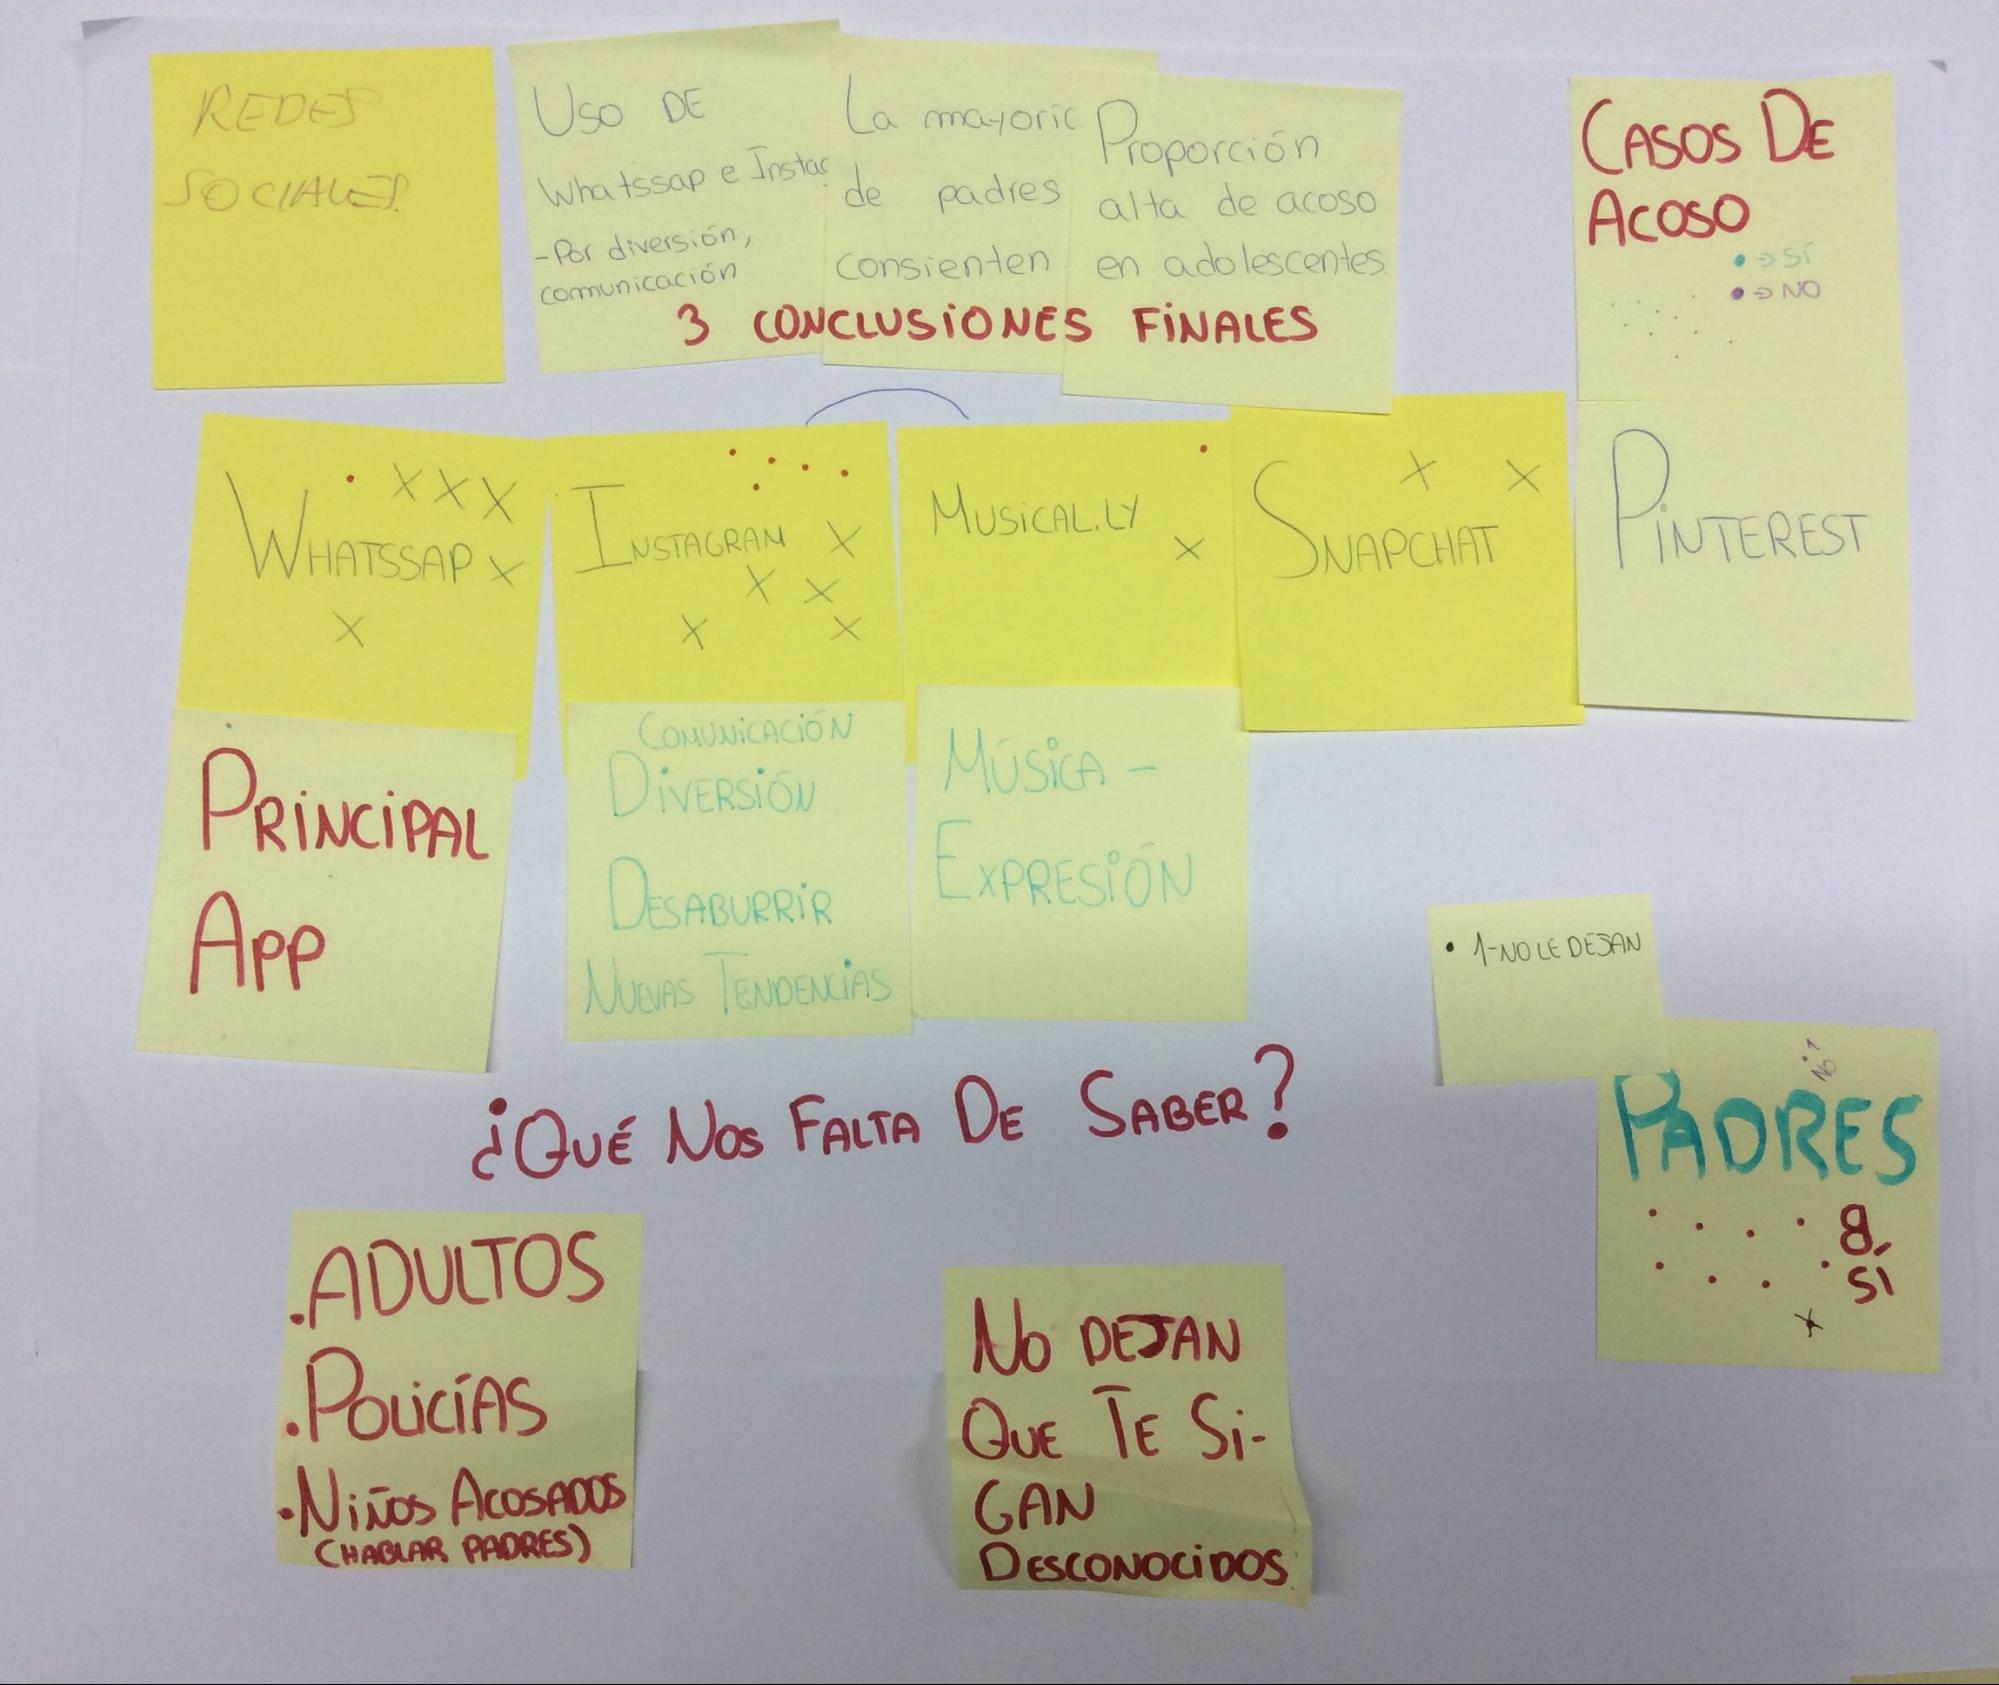 REDES
SOCIALES
USO DE
Whatssap e Instag
-Por diversión,
comunicación
La mayoric
de padres
consienten
Proporción
alta de acoso
en adolescentes.
3 CONCLUSIONES FINALES
CASOS DE
ACOSO
• => SÍ
• => NO
WHATSSAP
X X X
X
X
INSTAGRAM
X
X X
X X
MUSICAL.LY
X
SNAPCHAT
X X
PINTEREST
PRINCIPAL
APP
COMUNICACIÓN
DIVERSIÓN
DESABURRIR
NUEVAS TENDENCIAS
MÚSICA -
EXPRESIÓN
• 1-NO LE DEJAN
NO
PADRES
8
SÍ
¿QUÉ NOS FALTA DE SABER?
.ADULTOS
.POLICÍAS
.NIÑOS ACOSADOS
(HABLAR PADRES)
NO DEJAN
QUE TE SI-
GAN
DESCONOCIDOS.